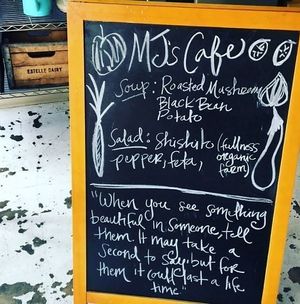 MJs Cafe
Soup: Roasted Mushroom
Black Bean
Potato
Salad: Shishito (fullness
pepper, feta, organic
farm)
"When you see something
beautiful in someone, tell
them. It may take a
second to say, but for
them it could last a life
time."
ESTELLE DAIRY